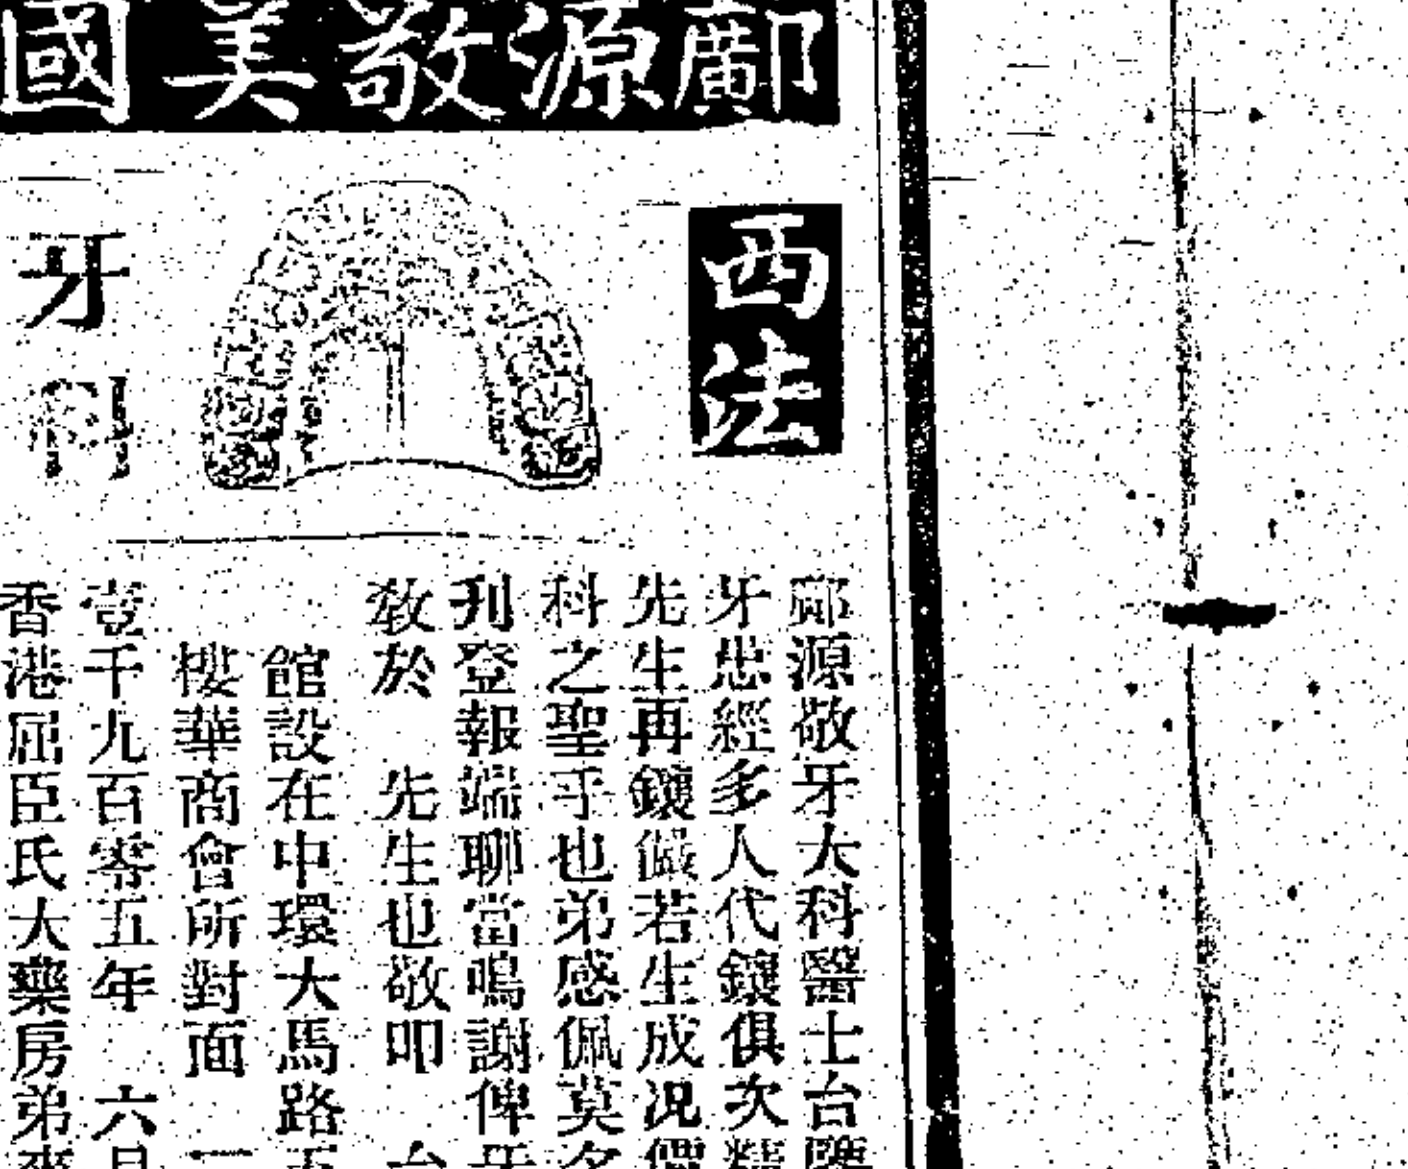 鄺源敬美國
西法
牙科
鄺源敬牙大科醫士台鑒
牙患經多人代鑲俱次精
先生再鑲儼若生成况價
科之聖手也弟感佩莫名
刋登報端聊當鳴謝俾牙
敎於 先生也敬叩 台
館設在中環大馬路五
樓華商會所對面 一
壹千九百零五年 六月
香港屈臣氏大藥房弟麥